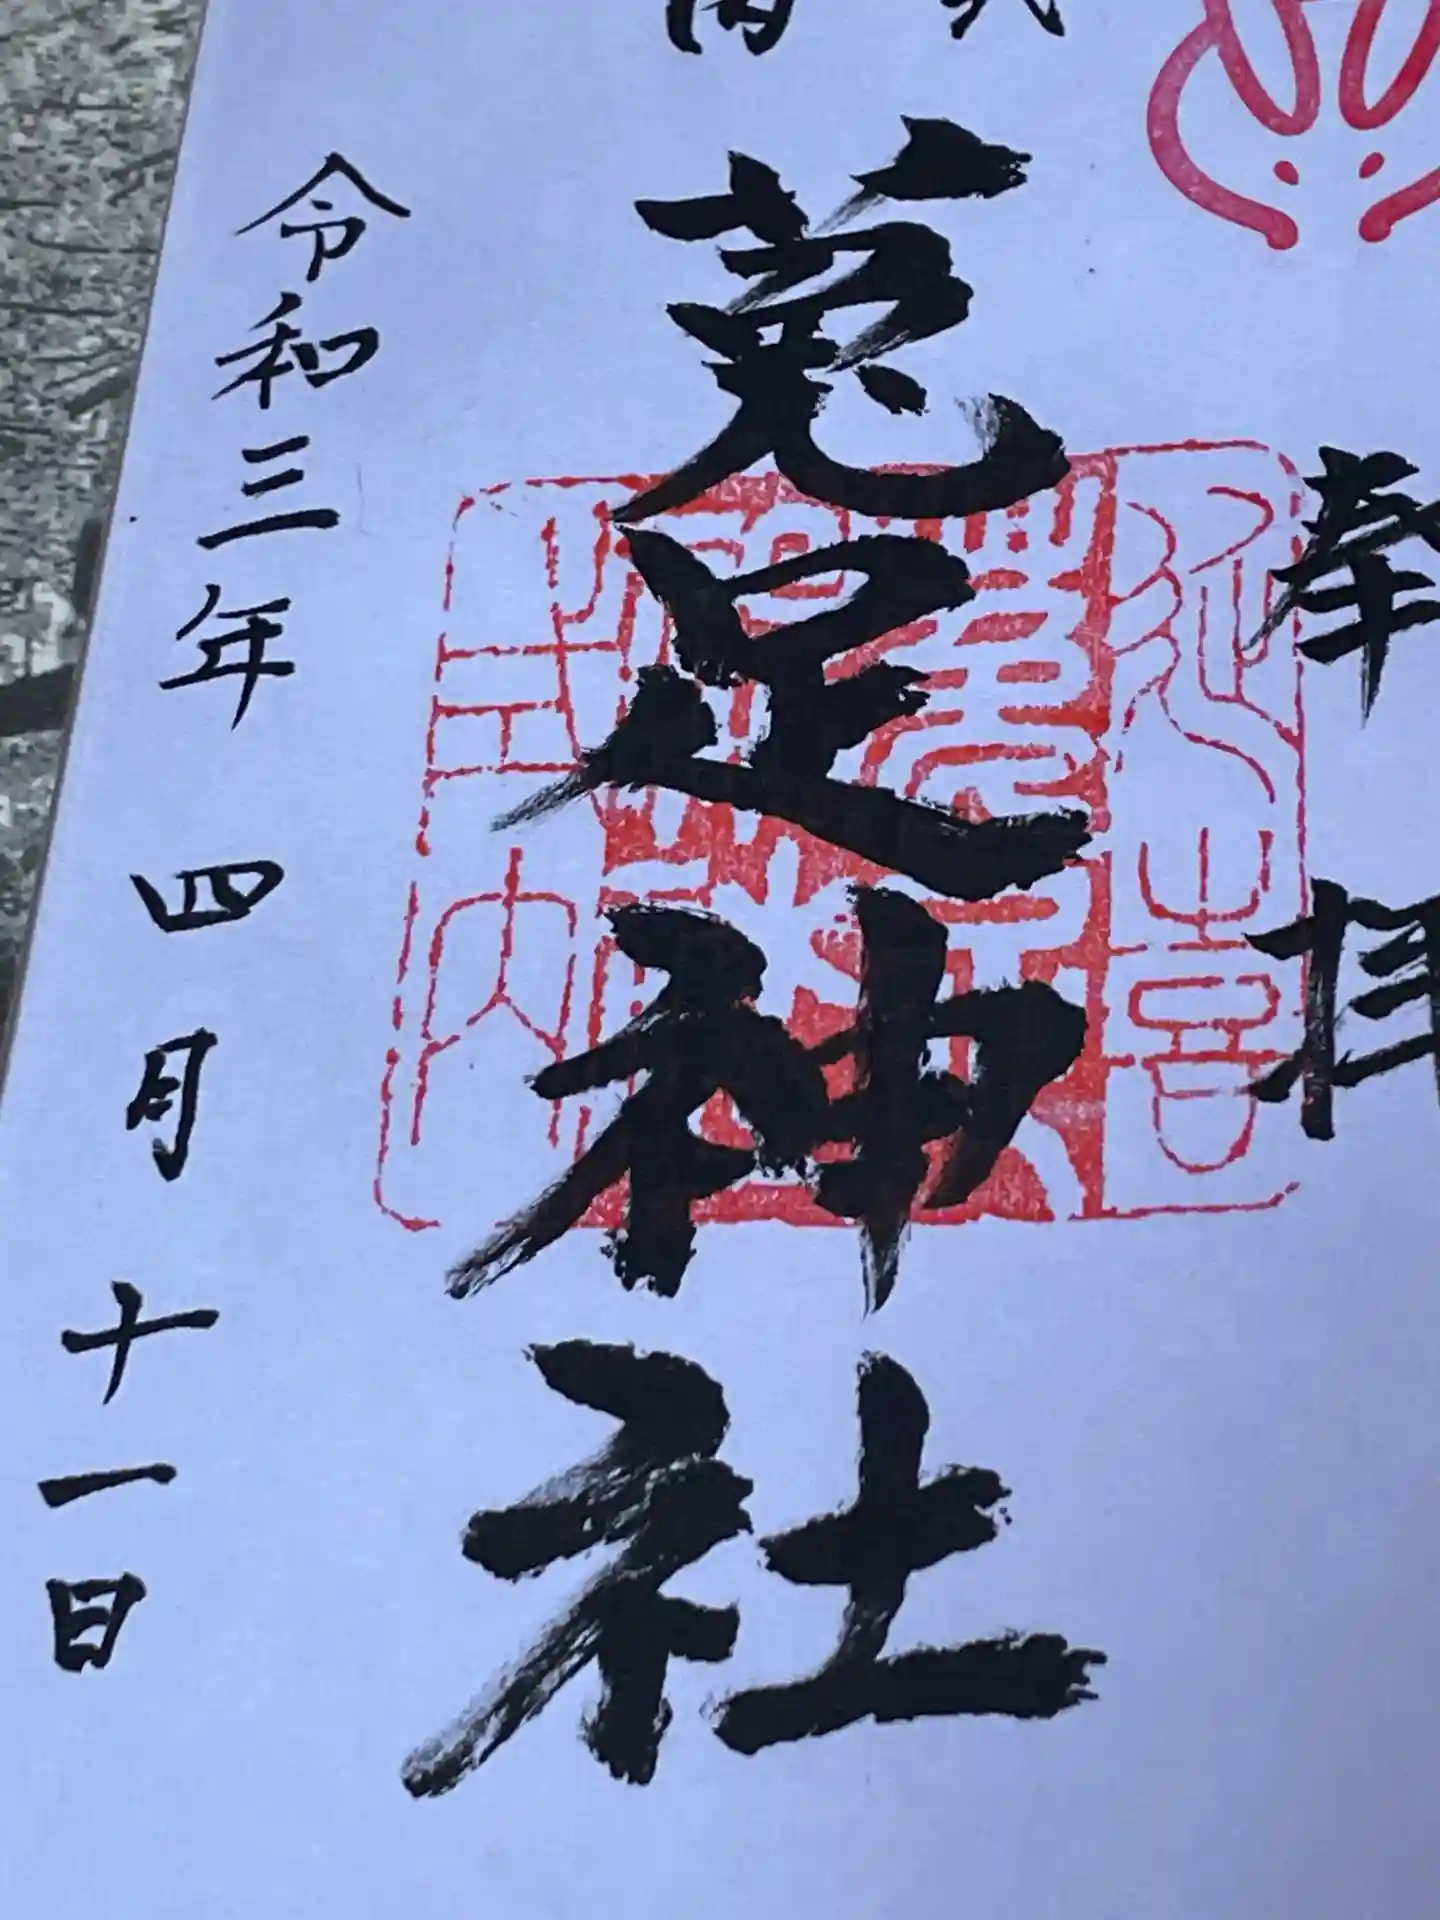 奉拝
菟足神社
令和三年四月十一日